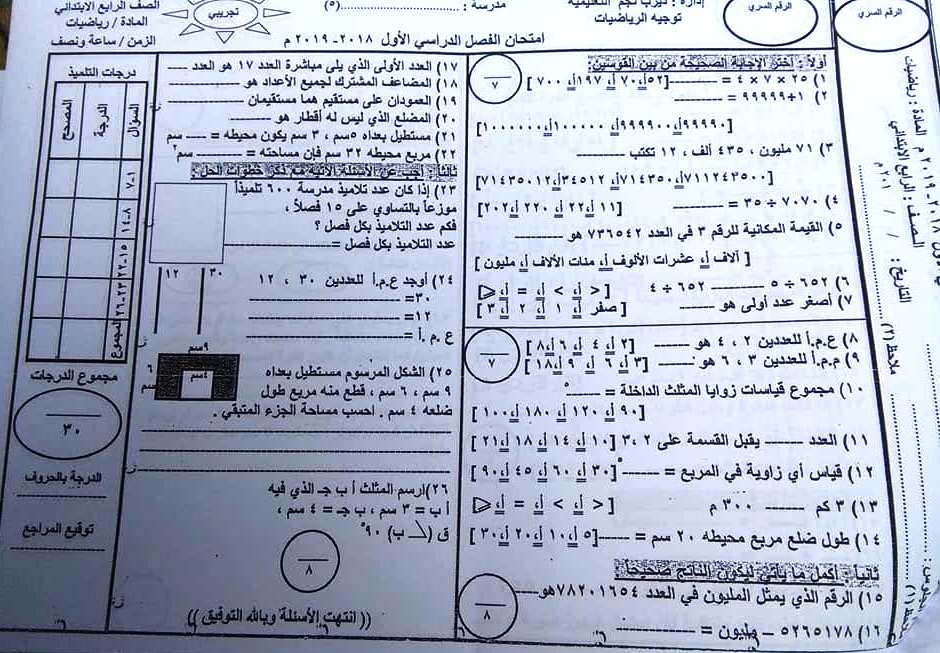 الصف الرابع الابتدائي
المادة / رياضيات
الزمن / ساعة ونصف
تجريبي
مدرسة :
(٥)
إدارة : ديرب نجم التعليمية
توجيه الرياضيات
الرقم السري
الرقم السري
امتحان الفصل الدراسي الأول ٢٠١٨ - ٢٠١٩ م
أولاً : أختر الإجابة الصحيحة من بين القوسين:
١) ٢٥ × ٧ × ٤ = ------ [٥٢ أ، ٧٠ أ، ١٩٧ أ، ٧٠٠ ]
٧
٢) ٩٩٩٩٩+١ = ------
[٩٩٩٩٠ أ، ٩٩٩٩٠٠ أ، ١٠٠٠٠٠ أ، ١٠٠٠٠٠٠]
٣) ٧١ مليون ، ٤٣٥ ألف ، ١٢ تكتب ------
[٧١١٢٤٣٥٠٠ أ، ٧١٤٣٥٠ أ، ٣٤٥١٢ أ، ٧١٤٣٥٠١٢]
٤) ٧٠٧٠ ÷ ٣٥ = ------ [١١ أ، ٢٢ أ، ٢٢٠ أ، ٢٠٢]
٥) القيمة المكانية للرقم ٣ في العدد ٧٣٦٥٤٢ هو ------
[ آلاف أ، عشرات الألوف أ، مئات الآلاف أ، مليون ]
٦) ٦٥٢ ÷ ٥ ------ ٦٥٢ ÷ ٤ [ > أ، < أ، = أ، ≥]
٧) أصغر عدد أولى هو ------ [ صفر أ، ١ أ، ٢ أ، ٣ ]
٨) ع.م.أ للعددين ٢ ، ٤ هو ------ [٢ أ، ٤ أ، ٦ أ، ٨ ]
٧
٩) م.م.أ للعددين ٣ ، ٦ هو ------ [٣ أ، ٦ أ، ٩ أ، ١٨]
١٠) مجموع قياسات زوايا المثلث الداخلة = ------°
[٩٠ أ، ١٢٠ أ، ١٨٠ أ، ١٠٠ ]
١١) العدد ------ يقبل القسمة على ٢ ،٣ [١٠ أ، ١٤ أ، ١٨ أ، ٢١ ]
١٢) قياس أي زاوية في المربع = ------° [٣٠ أ، ٦٠ أ، ٤٥ أ، ٩٠ ]
١٣) ٣ كم ------ ٣٠٠ م [ > أ، < أ، = أ، ≥]
١٤) طول ضلع مربع محيطه ٢٠ سم = ------[٥ أ، ١٠ أ، ٢٠ أ، ٣٠ ]
ثانياً : أكمل ما يأتي ليكون الناتج صحيحاً:
١٥) الرقم الذي يمثل المليون في العدد ٧٨٢٠١٦٥٤ هو------
٨
١٦) ٥٢٦٥١٧٨ – مليون = ------
١٧) العدد الأولى الذي يلى مباشرة العدد ١٧ هو العدد ----
١٨) المضاعف المشترك لجميع الأعداد هو ------
١٩) العمودان على مستقيم هما مستقيمان ------
٢٠) المضلع الذي ليس له أقطار هو ------
٢١) مستطيل بعداه ٥سم ، ٣ سم يكون محيطه = ---- سم
٢٢) مربع محيطه ٣٢ سم فإن مساحته = ------ سم٢
ثالثاً : أجب عن الأسئلة الآتية مع ذكر خطوات الحل:
٢٣) إذا كان عدد تلاميذ مدرسة ٦٠٠ تلميذاً
موزعاً بالتساوي على ١٥ فصلاً ،
فكم عدد التلاميذ بكل فصل ؟
عدد التلاميذ بكل فصل = ------
٢٤) أوجد ع.م.أ للعددين ٣٠ ، ١٢
٣٠
١٢
٣٠= ------
١٢= ------
ع . م . أ = ------
٢٥) الشكل المرسوم مستطيل بعداه
٩ سم ، ٦ سم ، قطع منه مربع طول
ضلعه ٤ سم . احسب مساحة الجزء المتبقي .
٩سم
٤سم
٦
سم
٢٦)ارسم المثلث أ ب جـ الذي فيه
أ ب = ٣ سم ، ب جـ = ٤ سم ،
ق (∠ ب) ٩٠°
٨
(( انتهت الأسئلة وبالله التوفيق ))
درجات التلميذ
السؤال
الدرجة
المصحح
٧-١
١٤-٨
٢٢-١٥
٢٦-٢٣
المجموع
مجموع الدرجات
٣٠
الدرجة بالحروف
توقيع المراجع
المادة : رياضيات
الصف : الرابع الابتدائي
التاريخ : / / ٢٠١ م
ملاحظ (٢)